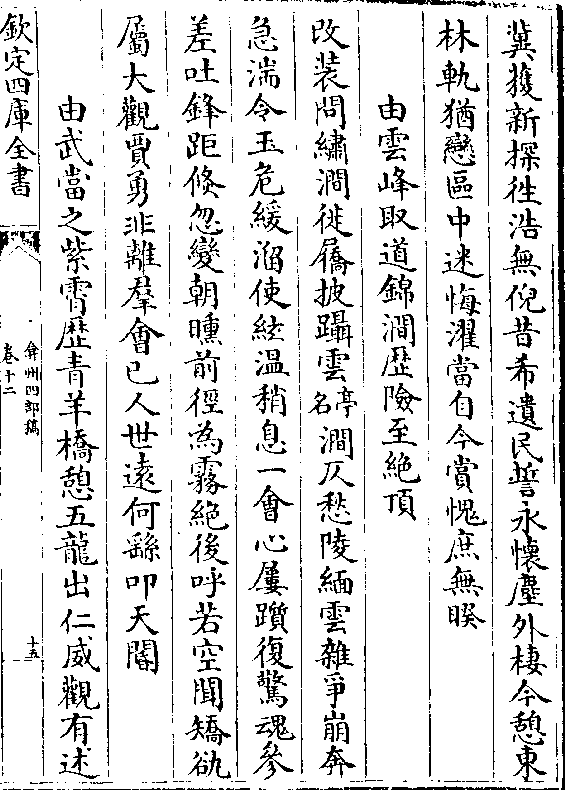 冀獲新探徃浩無倪昔希遺民誓永懷塵外棲今憩東
林軌猶戀區中迷悔濯當自今賞愧庶無暌
由雲峰取道錦澗歴險至絶頂
改装問繡澗徙屩披躡雲亭名澗仄愁陵緬雲雜爭崩奔
急湍令玉危緩溜使絃温稍息一會心屢躓復驚魂參
差吐鋒距倏忽變朝曛前徑為霧絶後呼若空聞矯欲
屬大觀賈勇非離羣會已人世逺何繇叩天閽
由武當之紫霄歴青羊橋憩五龍出仁威觀有述
欽定四庫全書
弇州四部稿
卷十二
十五